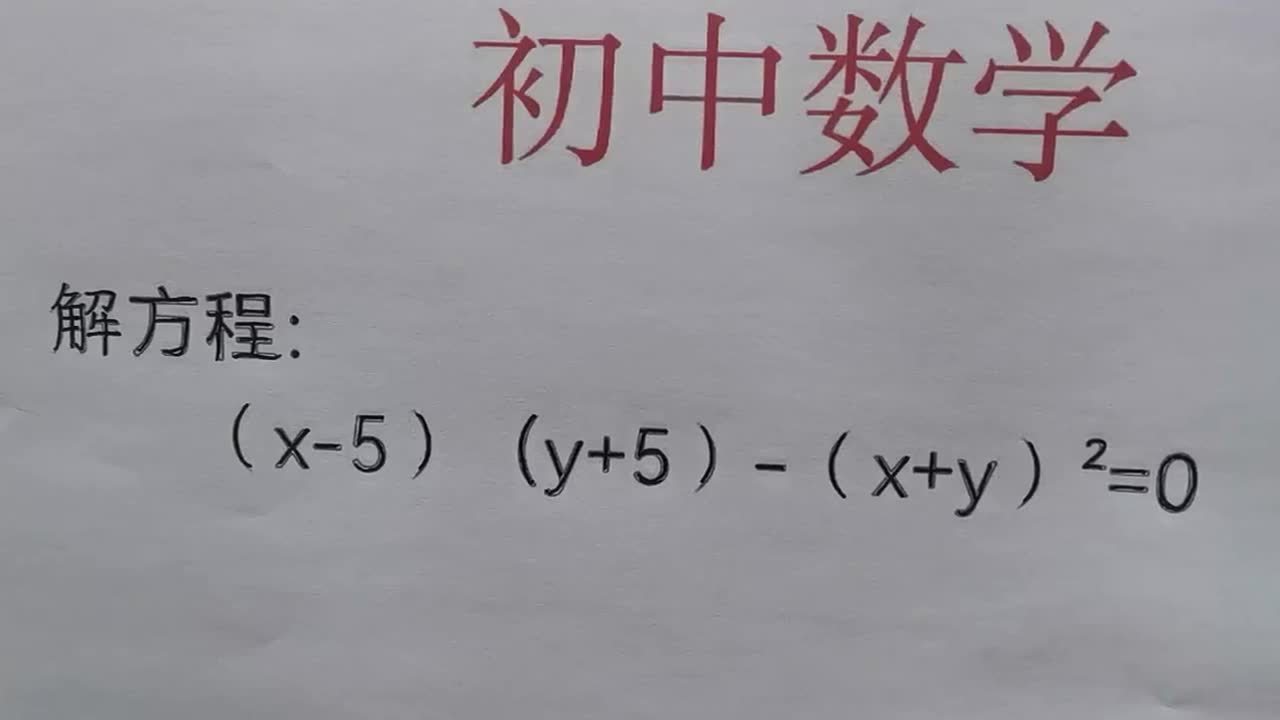 初中数学
解方程:
（x-5）（y+5）-（x+y）²=0